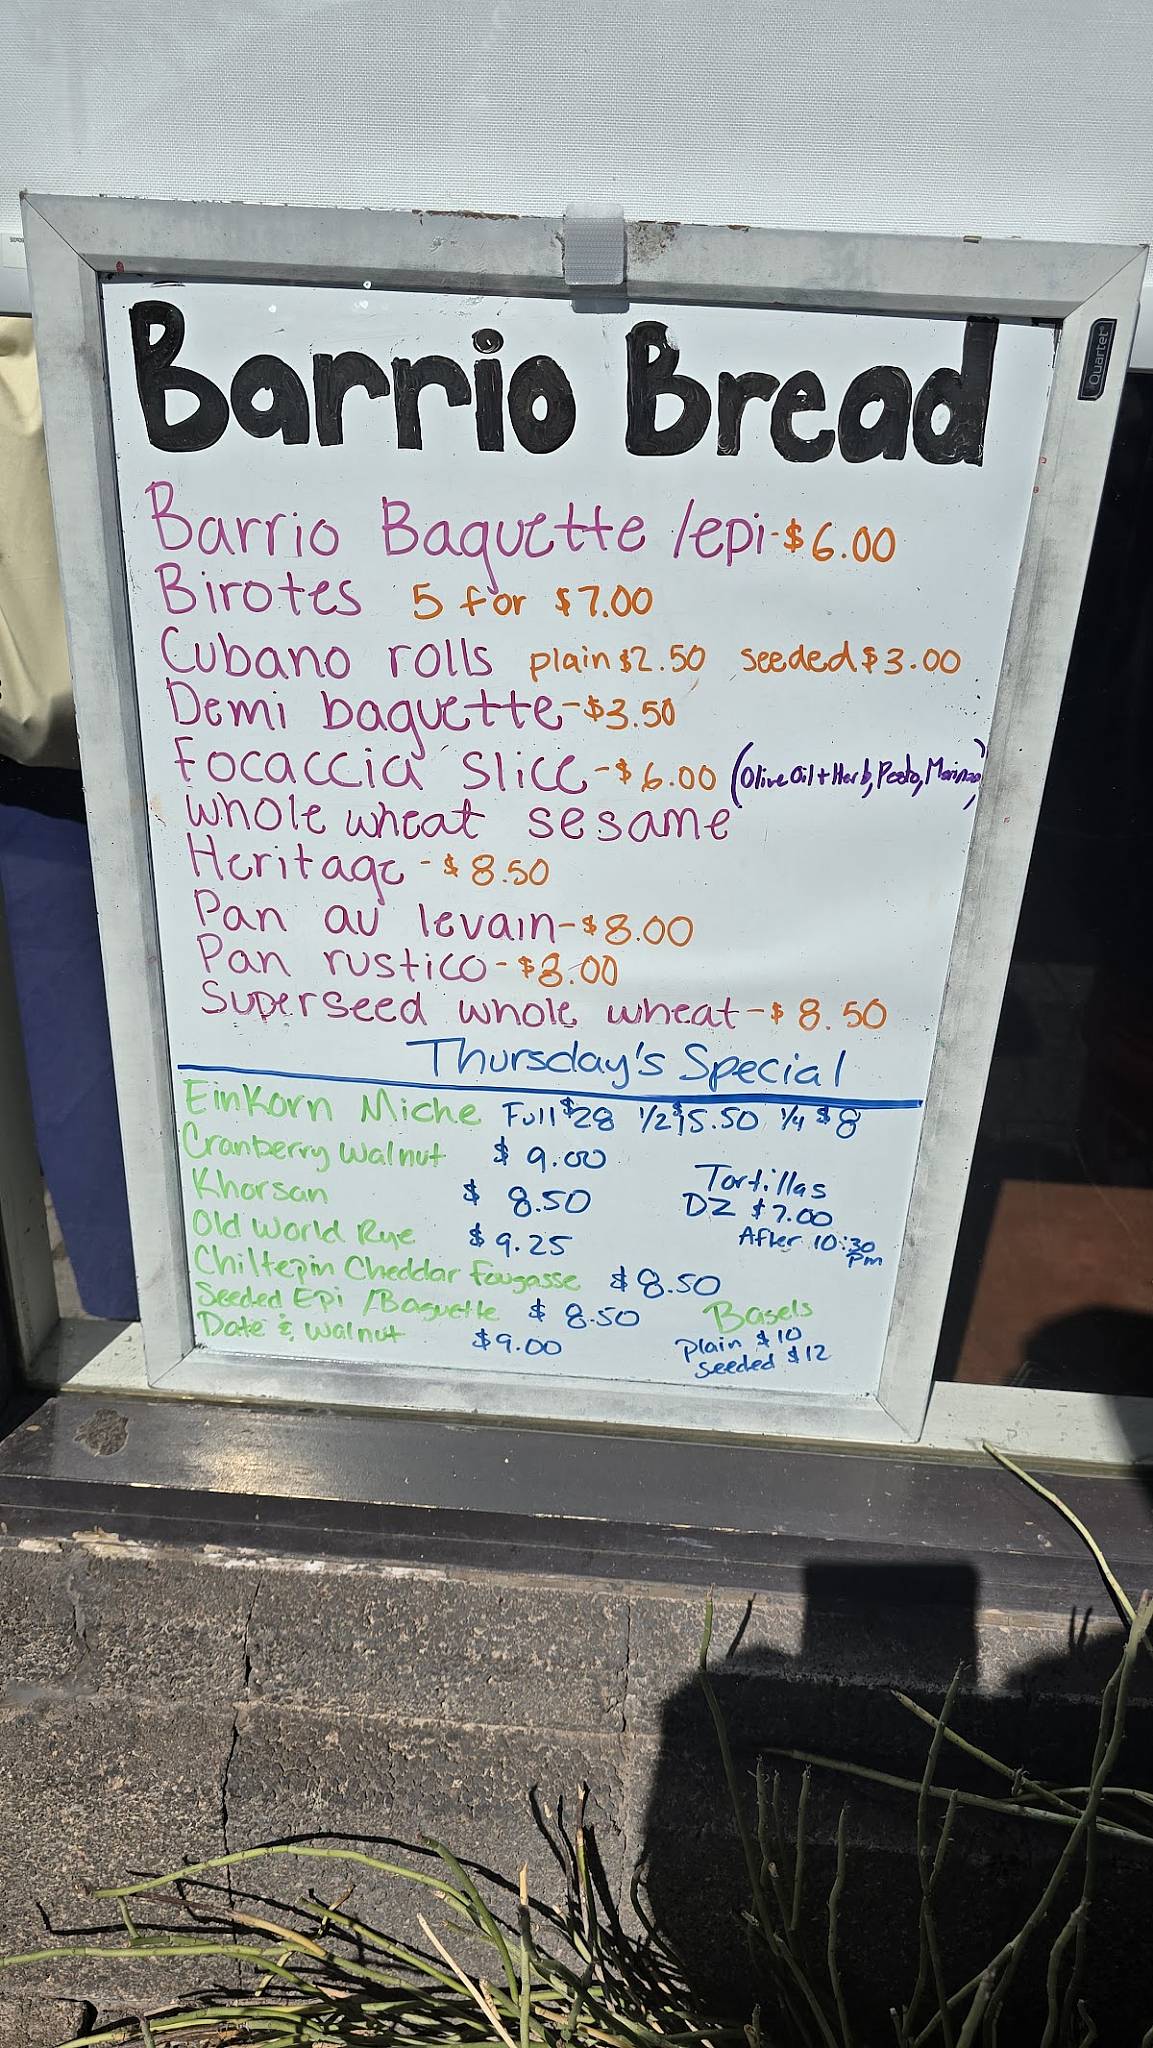 Quartet
Barrio Bread
Barrio Baguette /epi-$6.00
Birotes 5 for $7.00
Cubano rolls plain $2.50 seeded $3.00
Demi baguette-$3.50
Focaccia slice-$6.00 (Olive Oil + Herb, Pesto,
whole wheat sesame
Heritage-$8.50
Pan au levain-$8.00
Pan rustico-$8.00
Superseed whole wheat-$8.50
Thursday's Special
Einkorn Miche Full $28 1/2 $15.50 1/4 $8
Cranberry Walnut $9.00
Khorsan $8.50
Old World Rye $9.25
Chiltepin Cheddar Fougasse $8.50
Seeded Epi /Baguette $8.50
Date & Walnut $9.00
Tortillas
DZ $7.00
After 10:30
pm
Bagels
plain $10
seeded $12